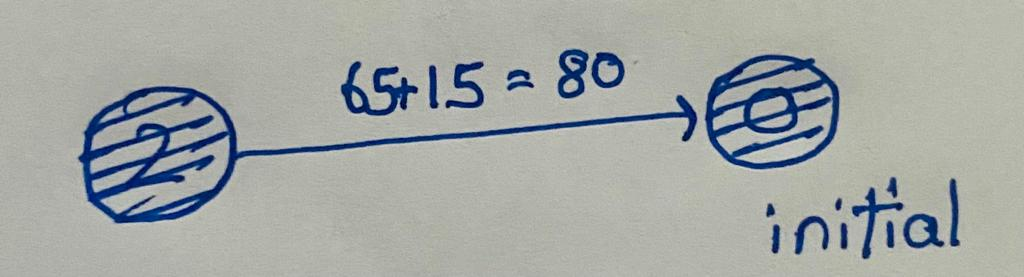 65+15 = 80
2
0
initial